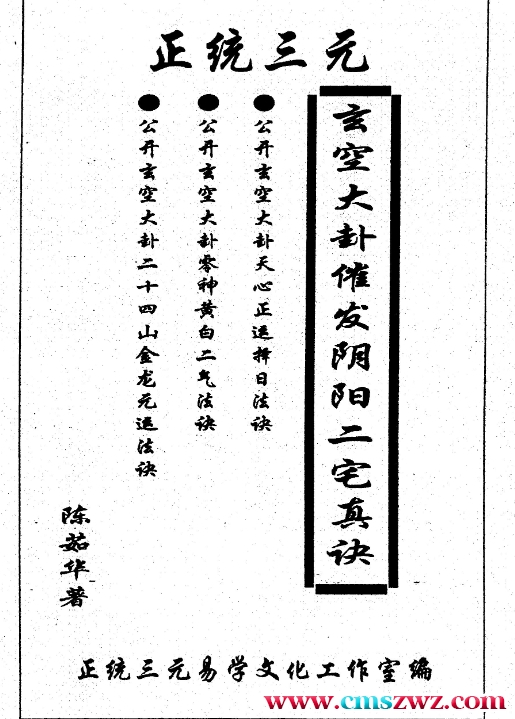 正统三元
玄空大卦催发阴阳二宅真诀
公开玄空大卦天心正运择日法诀
公开玄空大卦零神黄白二气法诀
公开玄空大卦二十四山金龙元运法诀
陈茹华著
正统三元易学文化工作室编
www.cmszwz.com